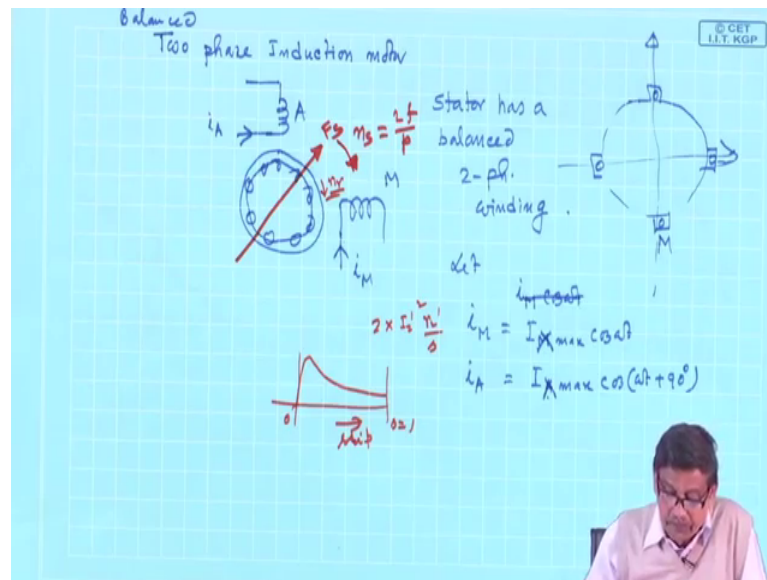 Balanced
Two phase Induction motor
© CET
I.I.T. KGP
A
i_A
F_S n_s = 2f/p
n_r
M
i_M
Stator has a
balanced
2-ph.
winding.
M
Let
i_M cosωt
2 × I_2'^2 r_2'/s
i_M = I_max cosωt
i_A = I_max cos(ωt + 90°)
0
slip
s=1